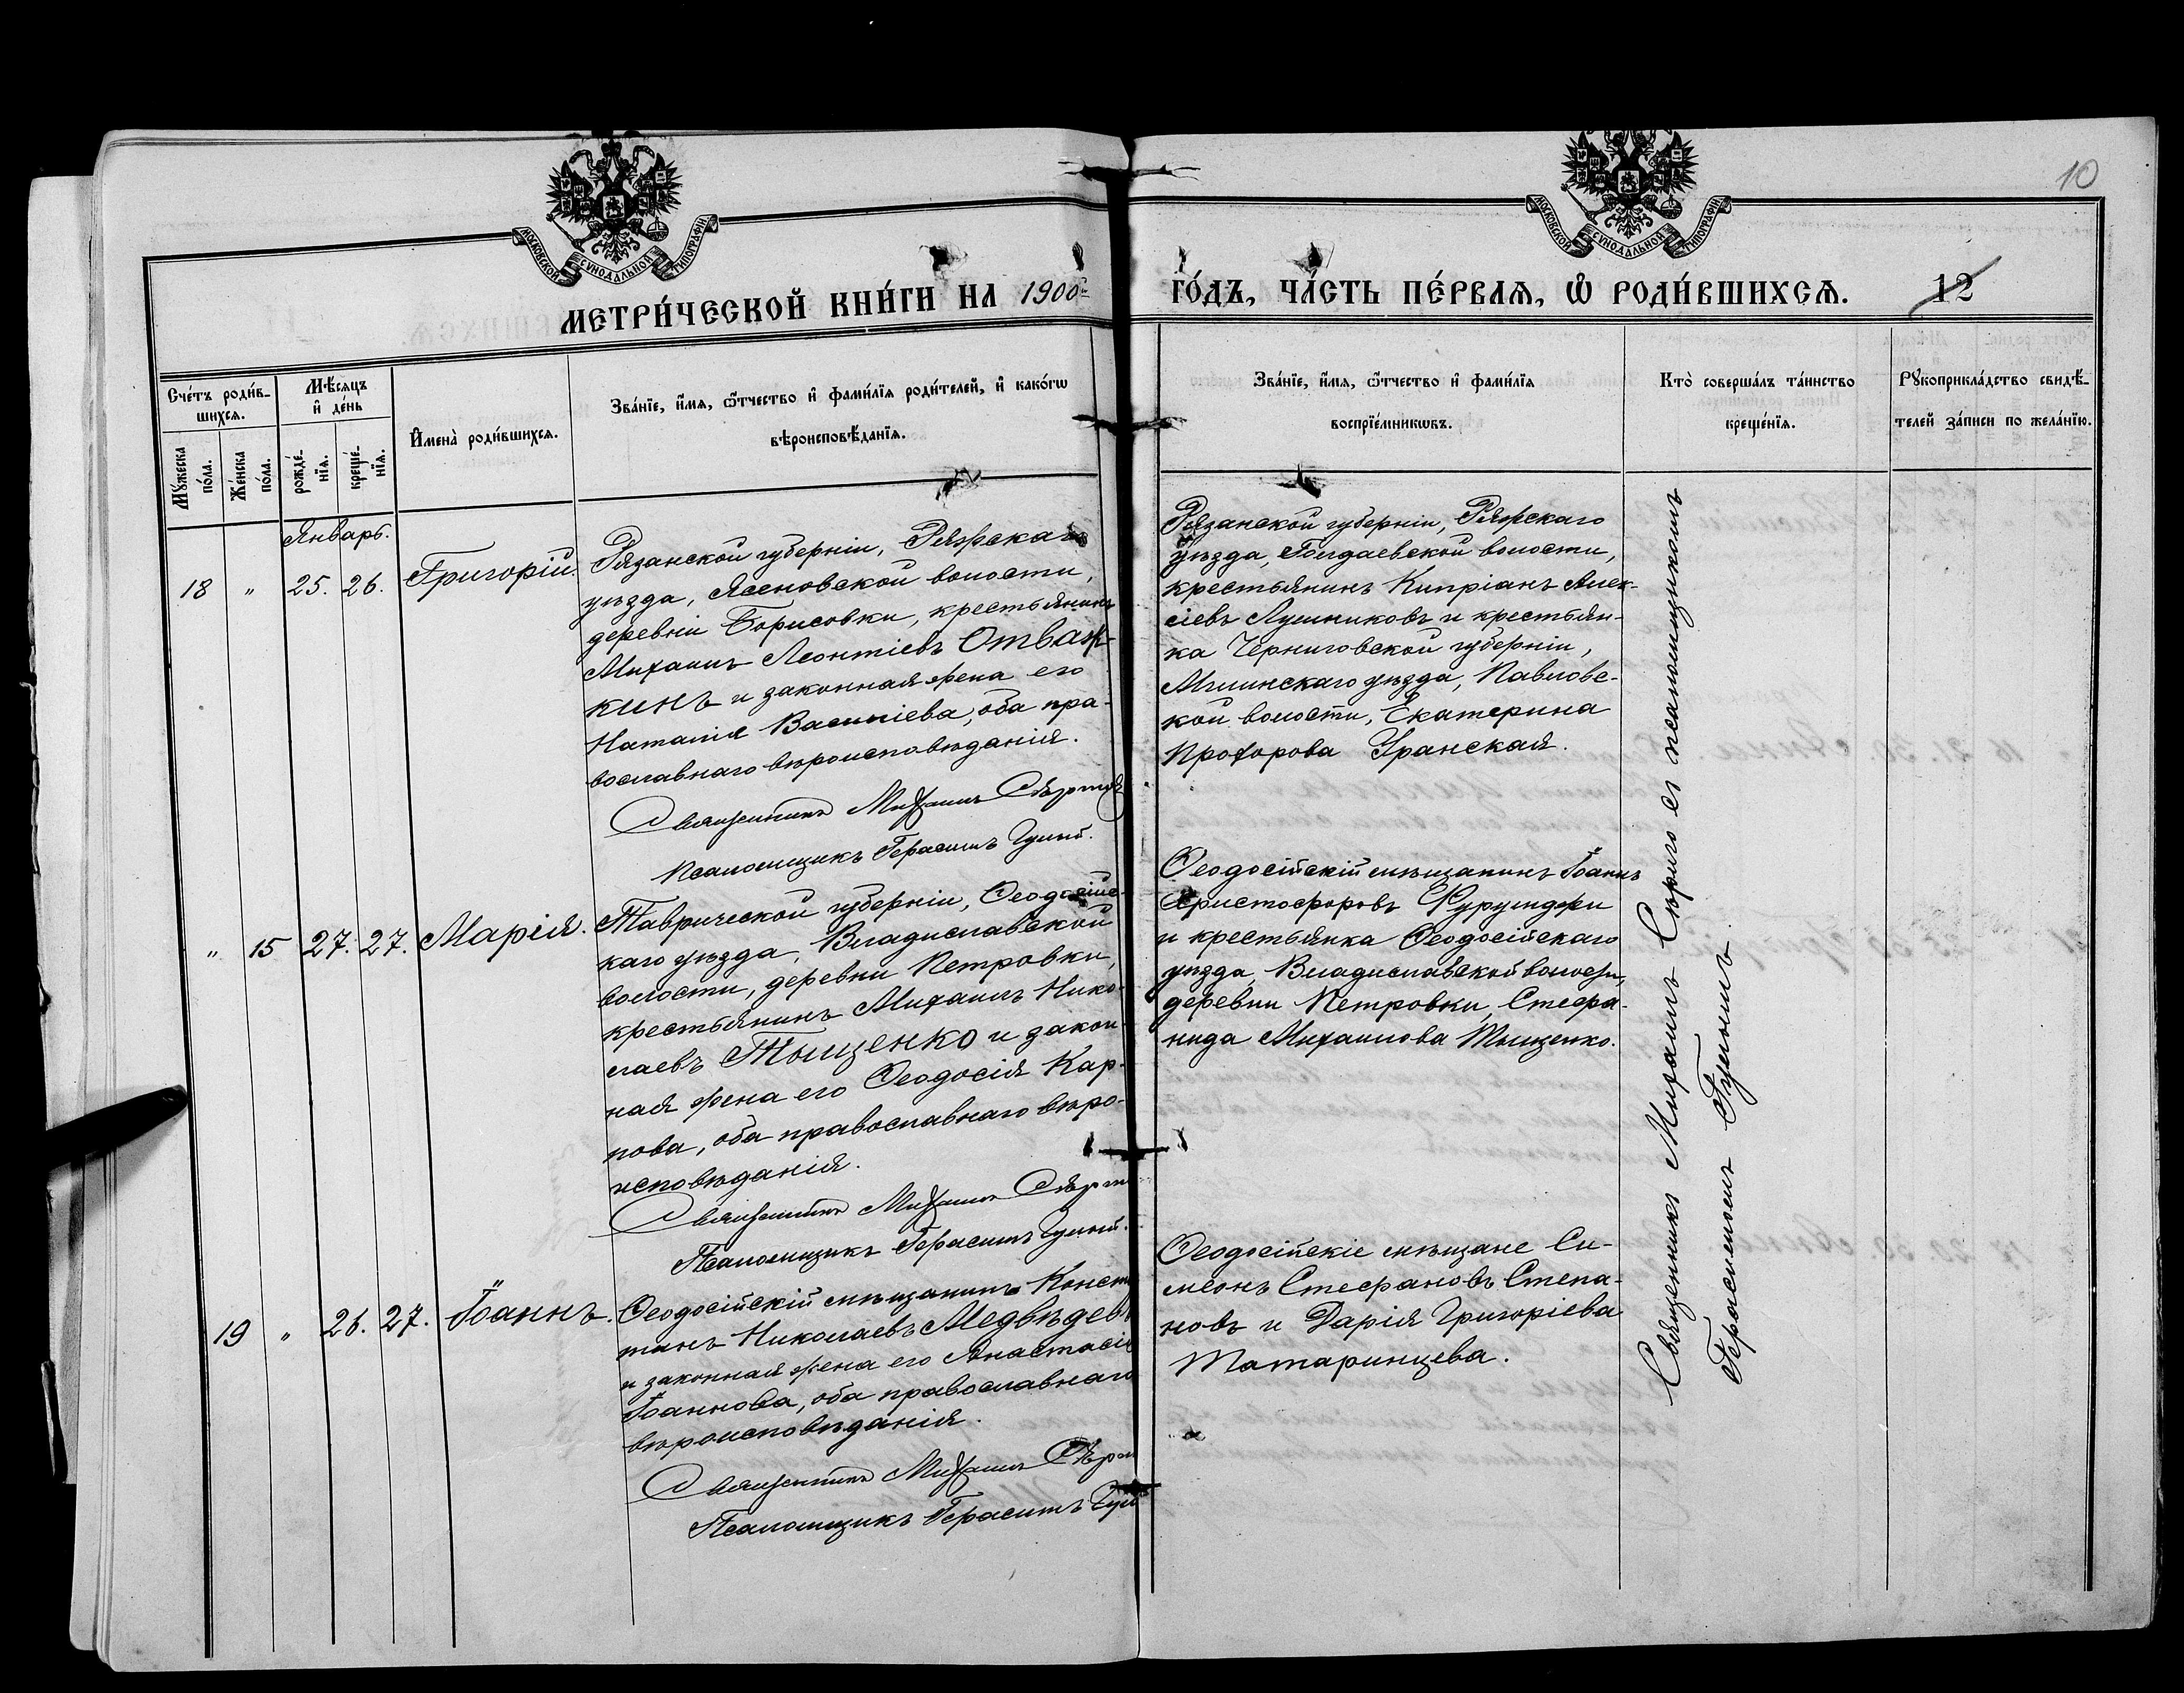 МОСКОВСКОЙ СУНОДАЛЬНОЙ ТИПОГРАФІИ
МОСКОВСКОЙ СУНОДАЛЬНОЙ ТИПОГРАФІИ
10
МЕТРИ́ЧЕСКОЙ КНИ́ГИ НА 1900й
ГО́ДЪ, ЧА́СТЬ ПЕ́РВАЯ, Ѡ҆ РОДИ́ВШИХСЯ.
12
Сче́тъ роди́в-
шихся.
Мꙋ́жеска по́ла.
Же́нска по́ла.
Мѣ́сяцъ
и҆ де́нь
рожде́-
нїя.
креще́-
нїя.
И҆мена̀ роди́вшихся.
Зва́нїе, и҆́мя, ѻ҆́тчество и҆ фами́лїя роди́телей, и҆ како́гѡ
вѣроисповѣ́данїя.
Зва́нїе, и҆́мя, ѻ҆́тчество и҆ фами́лїя
воспрїе́мникѡвъ.
Кто̀ соверша́лъ та́инство
креще́нїя.
Рꙋкоприкла́дство свидѣ́-
телей за́писи по жела́нїю.
Январь.
18 " 25. 26. Григорій.
Рязанской губерніи, Ряжскаго
уѣзда, Ясеновской волости,
деревни Борисовки, крестьянинъ
Михаилъ Леонтіевъ Отваж-
кинъ и законная жена его
Наталія Василіева, оба пра-
вославнаго вѣроисповѣданія.
Священникъ Михаилъ
Псаломщикъ Герасимъ
Рязанской губерніи, Ряжскаго
уѣзда, волости,
крестьянинъ Кипріанъ Алек-
сіевъ и крестьян-
ка Черниговской губерніи,
Мглинскаго уѣзда, Павловс-
кой волости, Екатерина
Прохорова Уранская.
" 15 27. 27. Марія.
Таврической губерніи, Ѳеодосійс-
каго уѣзда, Владиславской
волости, деревни Петровки,
крестьянинъ Михаилъ Нико-
лаевъ Тыщенко и закон-
ная жена его Ѳеодосія Кар-
пова, оба православнаго вѣро-
исповѣданія.
Священникъ Михаилъ
Псаломщикъ Герасимъ
Ѳеодосійскій мѣщанинъ Іоаннъ
Христофоровъ Фурунджи
и крестьянка Ѳеодосійскаго
уѣзда, Владиславской волости,
деревни Петровки, Стефа-
нида Михаилова Тыщенко.
19 " 26. 27. Іоаннъ.
Ѳеодосійскій мѣщанинъ Конста
тинъ Николаевъ Медвѣдев
и законная жена его Анастасія
Іоаннова, оба православнаго
вѣроисповѣданія.
Священникъ Михаилъ
Псаломщикъ Герасимъ
Ѳеодосійскіе мѣщане Си-
меонъ Стефановъ Степа-
новъ и Дарія Григоріева
Татаринцева.
Священникъ Михаилъ съ псаломщикомъ
Герасимомъ